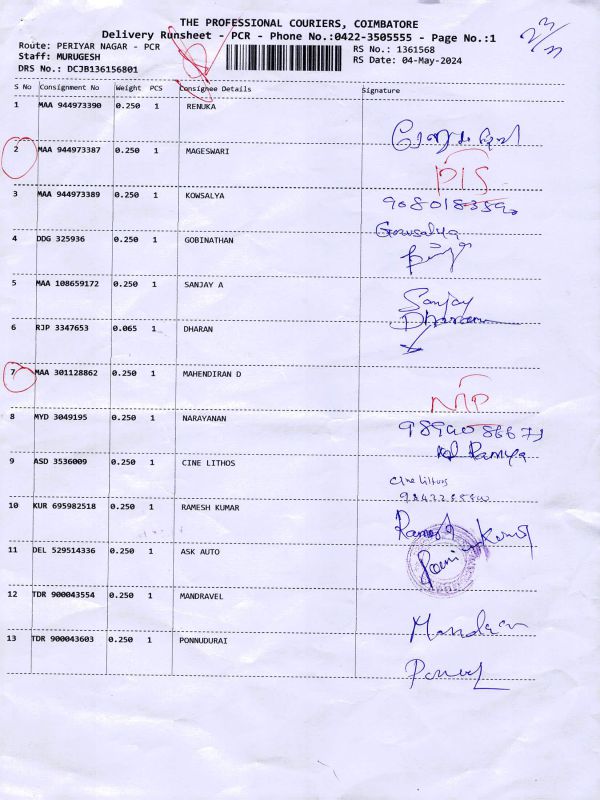 THE PROFESSIONAL COURIERS, COIMBATORE
Delivery Runsheet - PCR - Phone No.:0422-3505555 - Page No.:1
Route: PERIYAR NAGAR - PCR RS No.: 1361568
Staff: MURUGESH RS Date: 04-May-2024
DRS No.: DCJB136156801
S No Consignment No Weight PCS Consignee Details Signature
1 MAA 944973390 0.250 1 RENUKA
2 MAA 944973387 0.250 1 MAGESWARI
3 MAA 944973389 0.250 1 KOWSALYA
Gowsalya
4 DDG 325936 0.250 1 GOBINATHAN
5 MAA 108659172 0.250 1 SANJAY A
Sanjay
6 RJP 3347653 0.065 1 DHARAN Dharan
7 MAA 301128862 0.250 1 MAHENDIRAN D
8 MYD 3049195 0.250 1 NARAYANAN
Ramya
9 ASD 3536009 0.250 1 CINE LITHOS
Cine lithos
10 KUR 695982518 0.250 1 RAMESH KUMAR
Ramesh Kumar
11 DEL 529514336 0.250 1 ASK AUTO
12 TDR 900043554 0.250 1 MANDRAVEL
13 TDR 900043603 0.250 1 PONNUDURAI